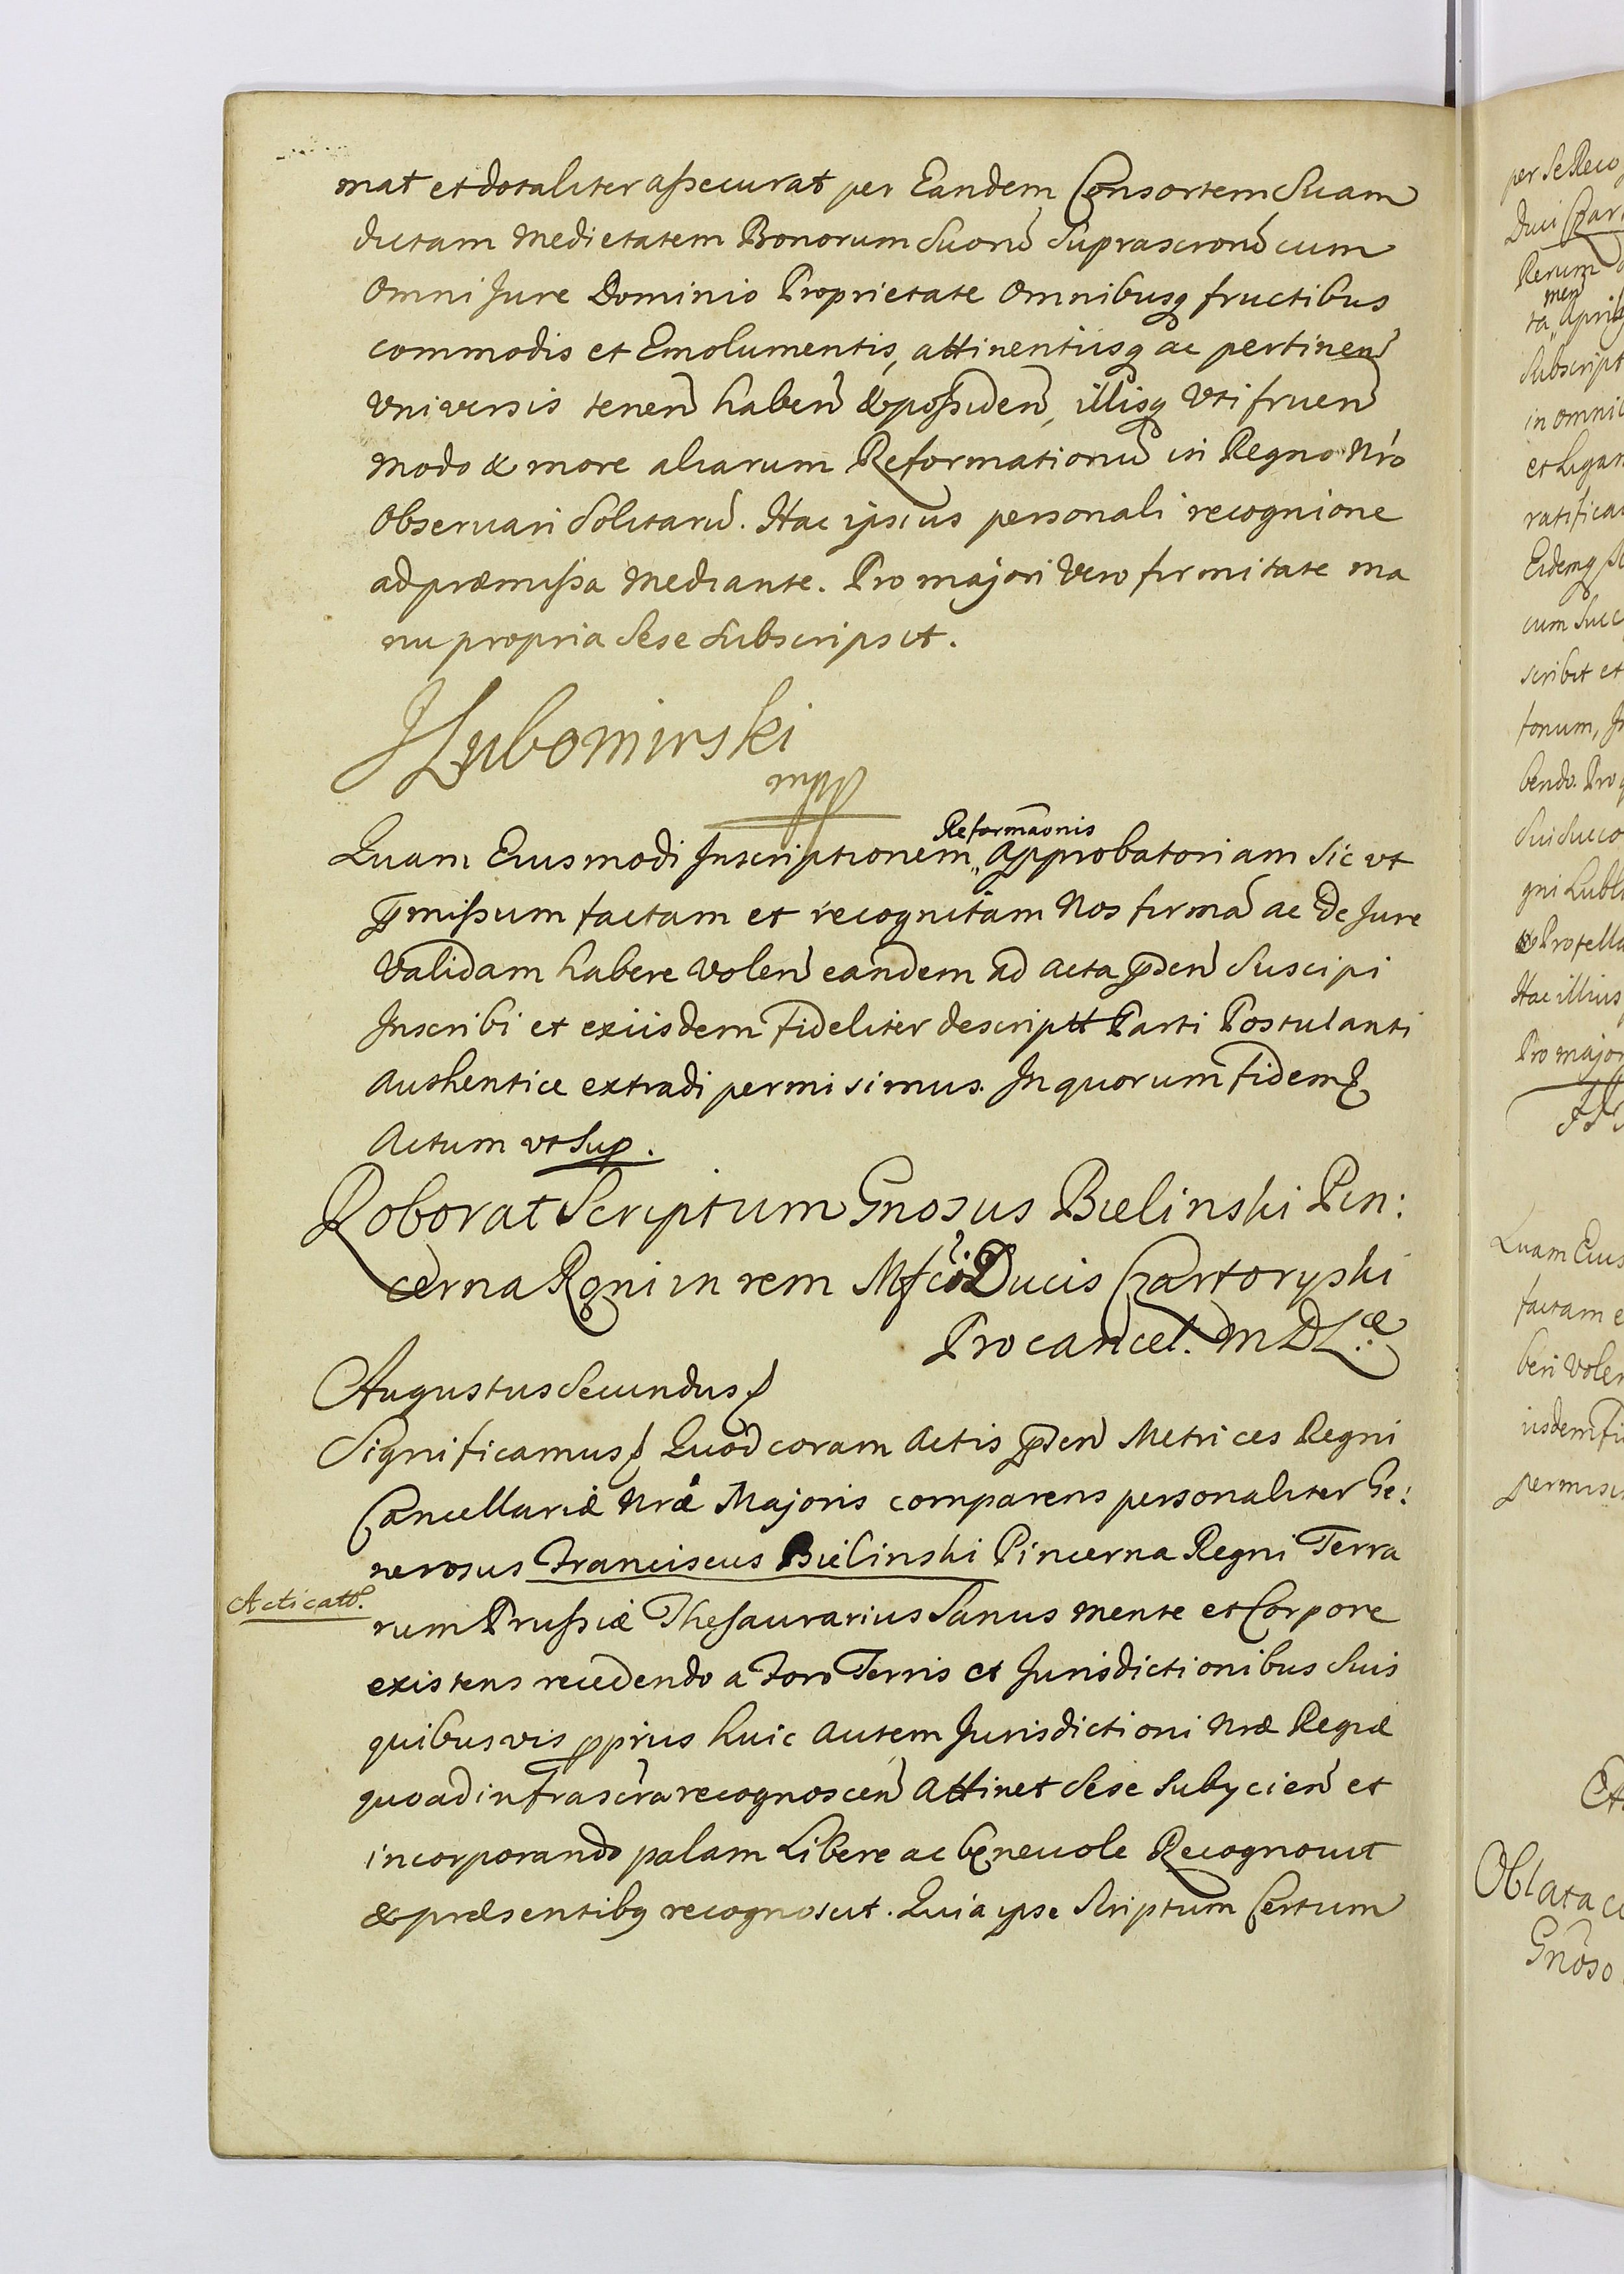 mat et dotaliter assecurat per Eandem Consortem Suam
dictam Medietatem Bonorum Suorũ Suprascronũ cum
Omni Jure Dominio Proprietate Omnibusq fructibus
commodis et Emolumentis, attinentiisq ac pertineñ
Universis teneñ habeñ & possideñ, illisq Uti frueñ
Modo & more aliarum Reformationũ in Regno Nro
Observari Solitarũ. Hac ipsius personali recognione
ad præmissa Mediante. Pro majori Vero firmitate ma
nu propria Sese Subscripsit.
JLubomirski
mpp
Reformaonis
Quam Eiusmodi Inscriptionem „ Approbatoriam Sic ut
pmissum factam et recognitam Nos firmã ac De Jure
Validam habere Voleñ eandem Ad Acta pseñ Suscipi
Inscribi et exiisdem Fideliter descriptt Parti Postulanti
Authentice extradi permisimus. In quorum Fidem
Actum ut Sup.
Roborat Scriptum Gnosus Bielinski Pin:
cerna Rgni in rem Mfci Ducis Czartoryski
Procancel. M D L.æ
Augustus Secundus
Significamus Quod coram Actis pseñ Metrices Regni
Cancellariæ Nræ Majoris comparens personaliter Ge:
nerosus Franciscus Bielinski Pincerna Regni Terra
Acticatt.
rum Prussiæ Thesaurarius Sanus mente et Corpore
existens recedendo a Foro Terris et Jurisdictionibus Suis
quibusvis pprius huic Autem Jurisdictioni Nræ Regiæ
quoad infrascra recognosceñ Attinet Sese Subycieñ et
incorporando palam Libere ac benevole Recognovit
& præsentibq recognoscit. Quia ipse Scriptum Certum
per Se Reco
Duci Czar
Rerum
men
ta „ April
Subscript
in omnib
et Ligar
ratifica
Eidemq
cum Succ
scribit et
torum,
bendo. Pro
Sui Succo
gni Lubli
Hac illius
Pro major
Quam Eius
factam e
beri Volen
iisdem Fi
permisi
Oblata
Gnoso